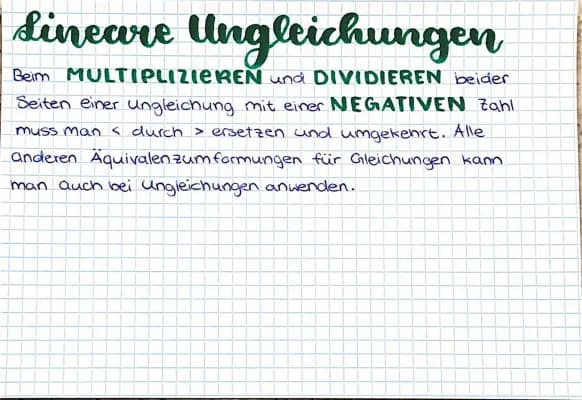 Lineare Ungleichungen
Beim MULTIPLIZIEREN und DIVIDIEREN beider
Seiten einer Ungleichung mit einer NEGATIVEN Zahl
muss man < durch > ersetzen und umgekehrt. Alle
anderen Äquivalenzumformungen für Gleichungen kann
man auch bei Ungleichungen anwenden.